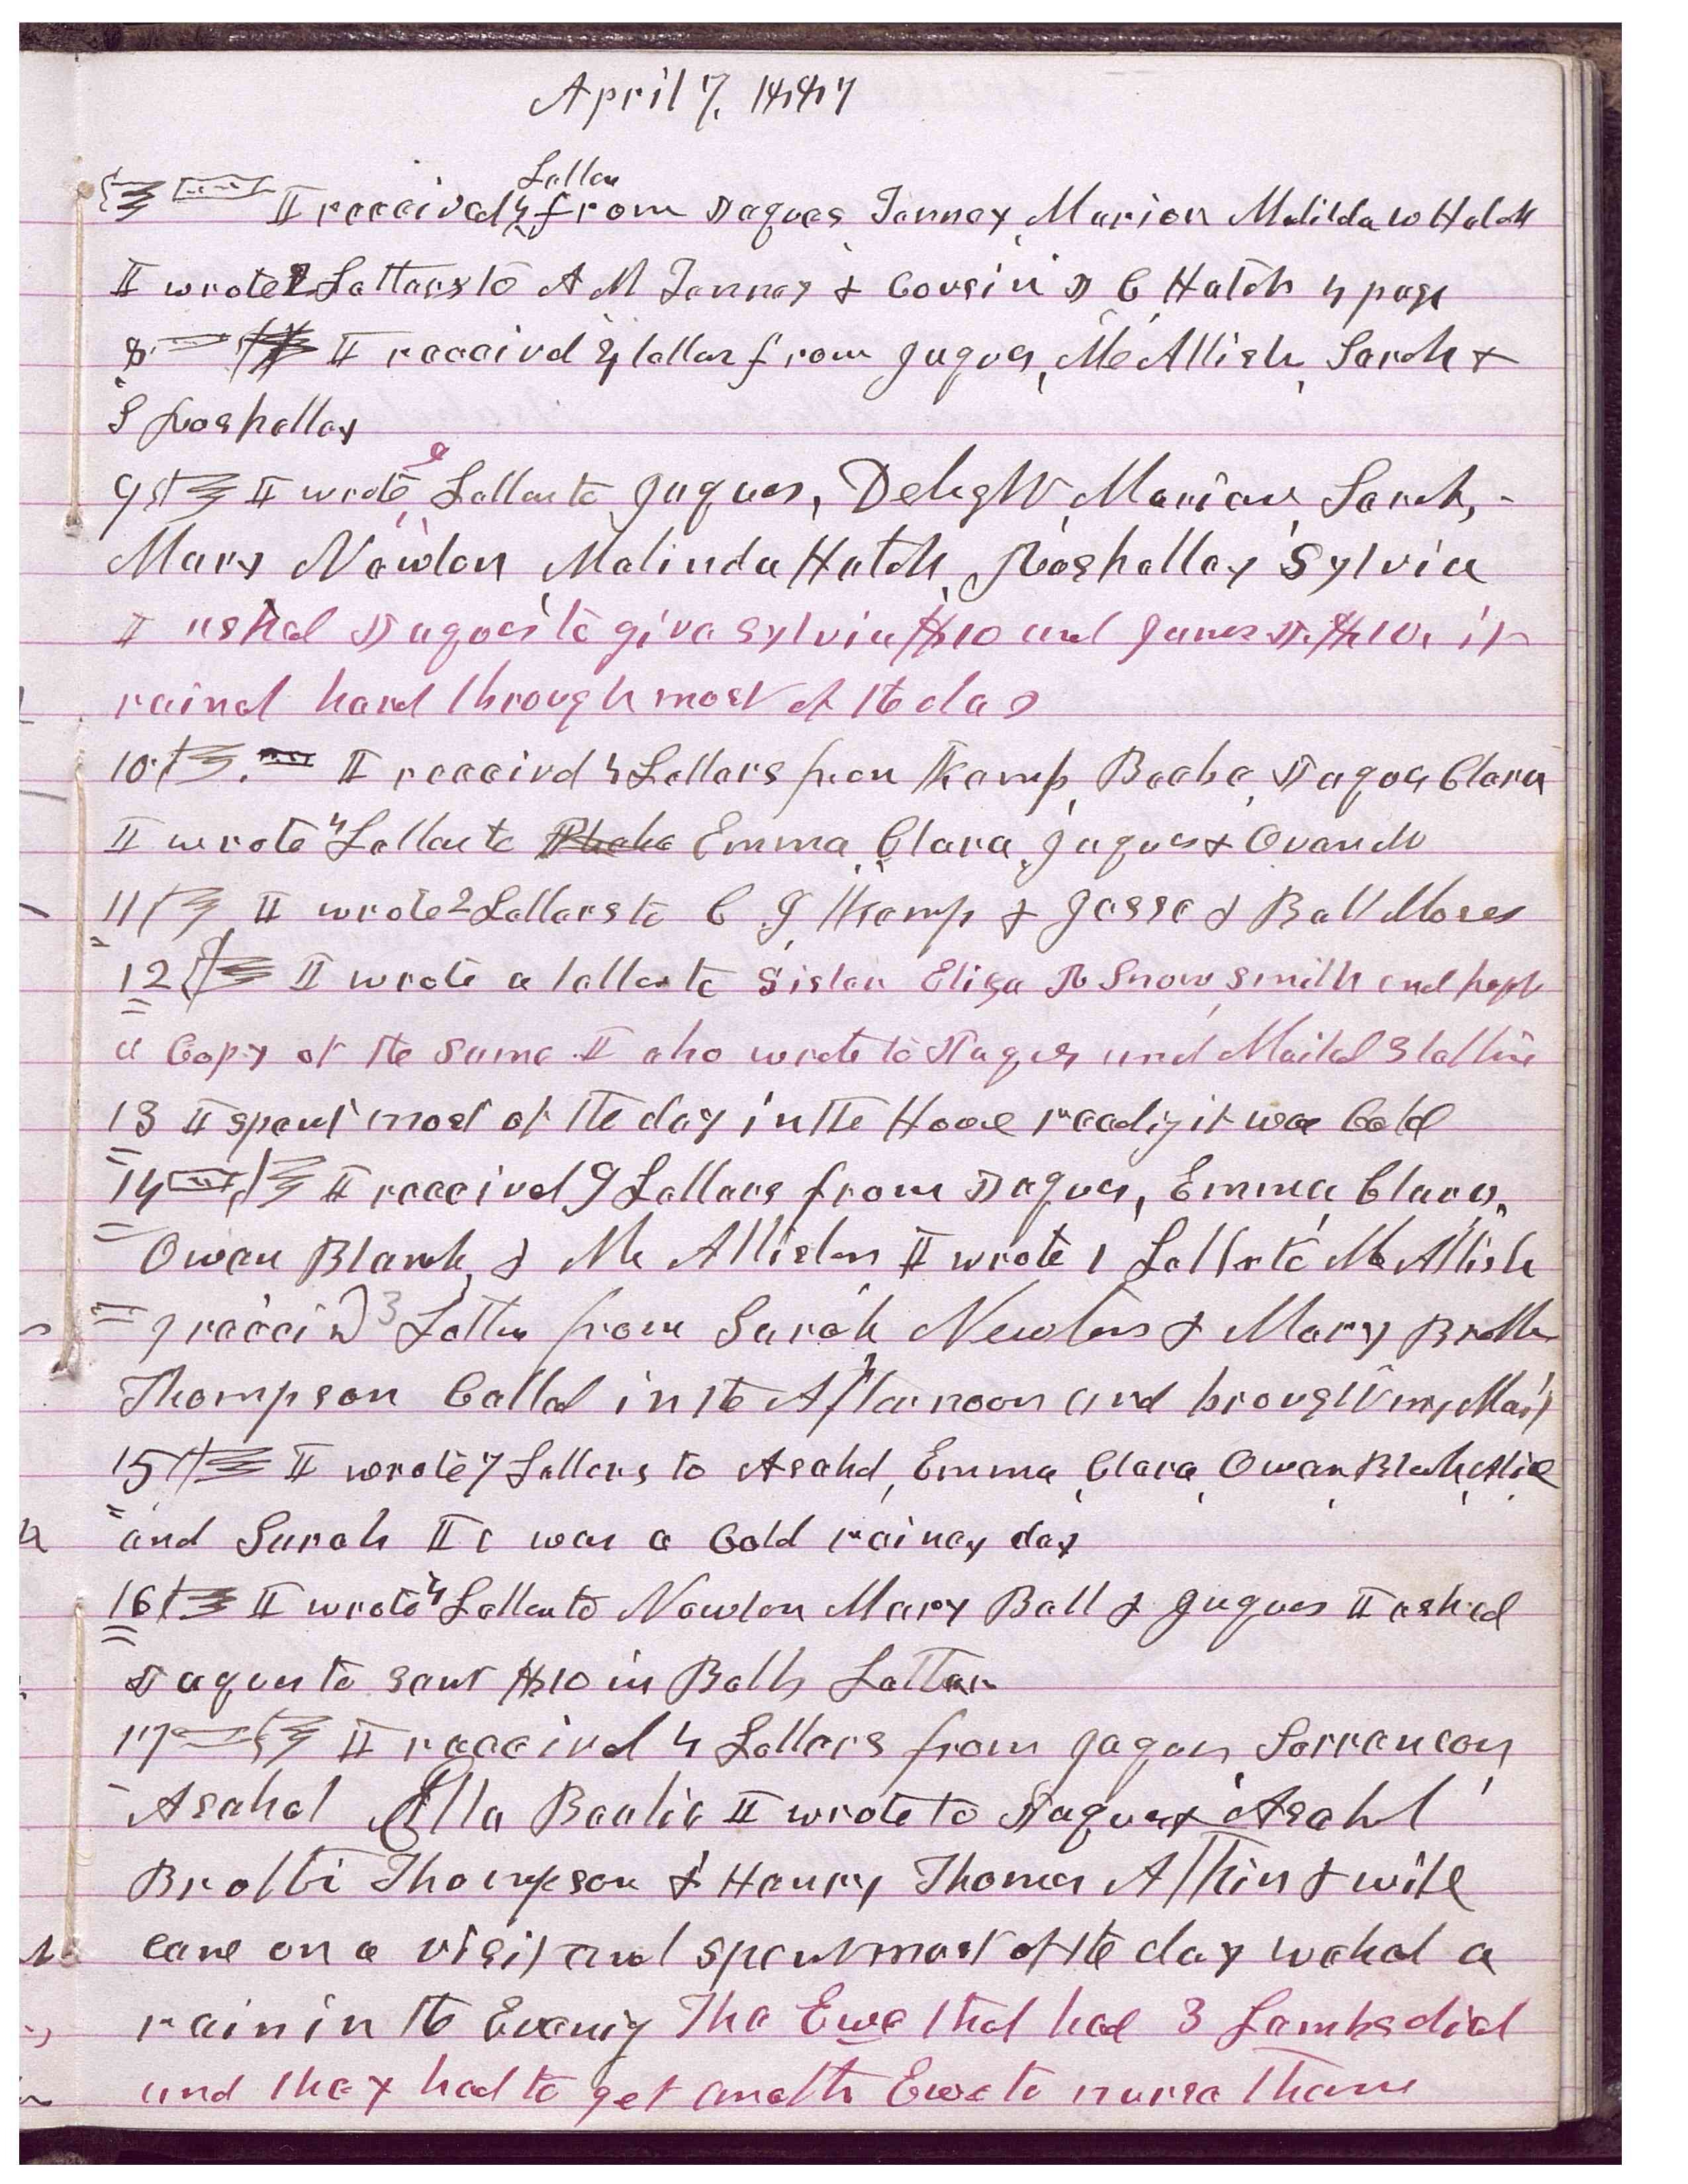 April 7, 1887
Letters
I received 4 from Jaques Tenney, Marion Matilda W Hatch
I wrote 2 Letters to A M Tenney & Cousin J C Hatch 4 page
8 I received 4 letters from Jaques, McAllister, Sarah &
S Roskelley
9 I wrote 9 Letters to Jaques, Delight, Marian, Sarah, -
Mary Newton, Malinda Hatch, Roskelley Sylvia
I asked Jaques to give Sylvia $10 and James J. $10. it
raind hard through most of the day
10 I receivd 4 Letters from Kemp, Beebe, Jaques Clara
I wrote 4 Letters to Phebe Emma, Clara, Jaques & Ovando
11 I wrote 2 Letters to C G Kemp & Jesse & Bell Moses
12 I wrote a letter to Sister Eliza R Snow Smith and kept
a Copy of the same I also wrote to Jaques and Mailed 3 letters
13 I spent most of the day in the House readig it was Cold
14 I received 9 Letters from Jaques, Emma, Clara,
Owen Blanch, & McAllister I wrote 1 Letter to McAllister
I receivd 3 Letters from Sarah Newton & Mary Brother
Thompson Called in the Afternoon and brought my Mail
15 I wrote 7 Letters to Asahel, Emma, Clara, Owen Blanch, Alice
and Sarah It was a Cold rainey day
16 I wrote 4 Letters to Newton Mary Bell & Jaques I asked
Jaques to sent $10 in Bells Letter
17 I received 4 Letters from Jaques, Sorrenson,
Asahel Ella Beatie I wrote to Jaques & Asahel
Brother Thompson & Henry Thomas Atkin & wife
came on a visit and spent most of the day we had a
rain in the Evenig The Ewe that had 3 Lambs died
and they had to get another Ewe to nurse them